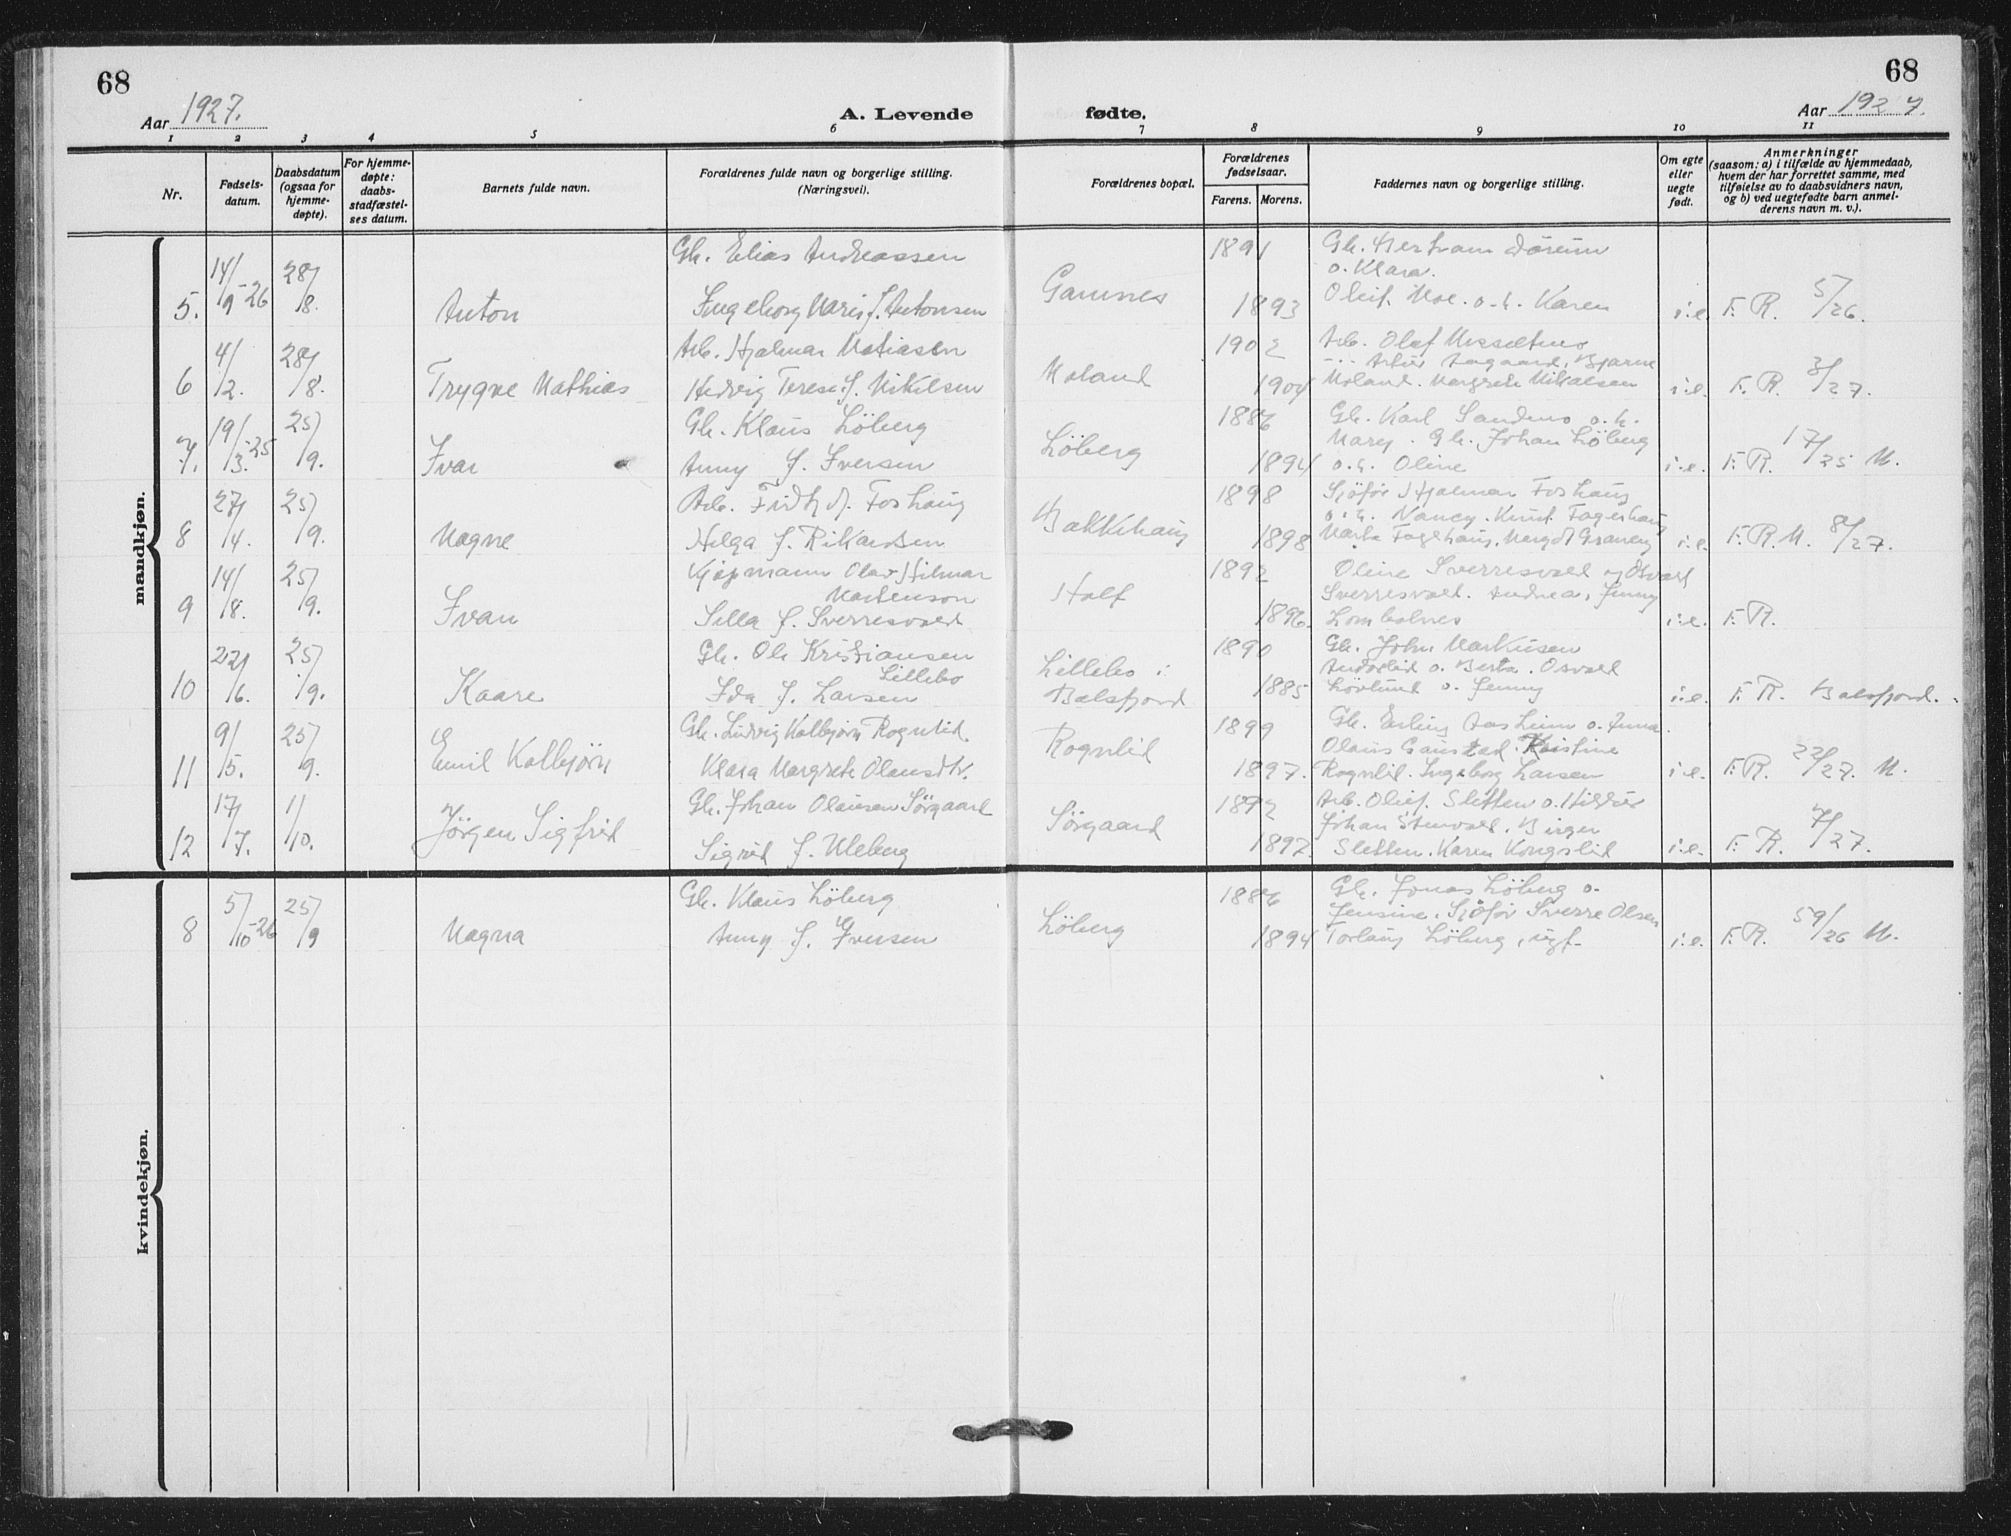 68
68
Aar 1927.
A. Levende
fødte.
Aar 1927.
1 2 3 4 5 6 7 8 9 10 11
Nr.
Fødsels-
datum.
Daabsdatum
(ogsaa for
hjemme-
døpte).
For hjemme-
døpte:
daabs-
stadfæstel-
ses datum.
Barnets fulde navn.
Forældrenes fulde navn og borgerlige stilling.
(Næringsvei).
Forældrenes bopæl.
Forældrenes
fødselsaar.
Farens. Morens.
Faddernes navn og borgerlige stilling.
Om egte
eller
uegte
født.
Anmerkninger
(saasom: a) i tilfælde av hjemmedaab,
hvem der har forrettet samme, med
tilføielse av to daabsvidners navn,
og b) ved uegtefødte barn anmel-
derens navn m. v.).
mandkjøn.
5. 14/9-26 28/8. Anton
Gb. Elias Andreassen
Ingeborg Marie f. Antonsen
Gamnes
1891
1893
Gb. Bertram
o. Klara.
Oluf Moe. o. h. Karen
i.e. F. R. 5/26.
6 4/2. 28/8. Trygve Mathias
Arb. Hjalmar Matiasen
Hedvig Terese f. Nikelsen
Moland
1902
1904
Arb. Olaf
Aagaard, Bjarne
Moland. Margrete Mikalsen
i.e. F. R. 3/27.
7. 19/3-25 25/9. Ivar
Gb. Klaus Löberg
Anny f. Iversen
Löberg
1886
1894
Gb. Karl Sandmo o. h.
Mary. Gb. Johan Löberg
o. h. Oline
i.e. F. R. 17/25 M.
8 27/4. 25/9. Magne
Arb. Fridtj. Foshaug
Helga f. Rikardsen
Bakkehaug
1898
1898
Sjöför Hjalmar Foshaug
o. h. Nancy. Knut Fagerhaug
i.e. F. R. M. 8/27.
9 14/8. 25/9. Ivan
Kjøpmann Olav Hilmar
Martenson
Silla f. Sverresvold
Stolf
1892
1896.
Oline Sverresvold og Osvald
Sverresvold. Andrea, Jenny
Lombolnes
i.e. F. R.
10 22/6. 25/9. Kaare
Gb. Ole Kristiansen
Lillebo
Ida f. Larsen
Lillebo i
Balsfjord
1890
1885
Gb. John Markusen
o. Berta. Osvald
Lövlund o. Jenny
i.e. F. R. Balsfjord.
11 9/5. 25/9. Emil Kolbjörn
Gb. Ludvig Kolbjörn Rognlid.
Klara Margrete Olausdtr.
Rognlid
1899
1897.
Gb. Erling Aas o. Anna.
Olaus Gaustad. Kristine
Rognlid. Ingeborg Larsen
i.e. F. R. 22/27. M.
12 17/7. 1/10. Jörgen Sigfrid
Gb. Johan Olausen Sörgaard
Sigrid f. Uleberg
Sörgaard
1892
1897.
Arb. Oluf Sletten o. Hildur
Johan Stenvold. Birger
Sletten. Karen Kongslid
i.e. F. R. 7/27.
kvindekjøn.
8 5/10-26 25/9 Magna
Gb. Klaus Löberg
Anny f. Iversen
Löberg
1886
1894
Gb. Jonas Löberg o.
Jensine. Sjöför Sverre Olsen
Torlaug Löberg, ugf.
i.e. F. R. 59/26 M.